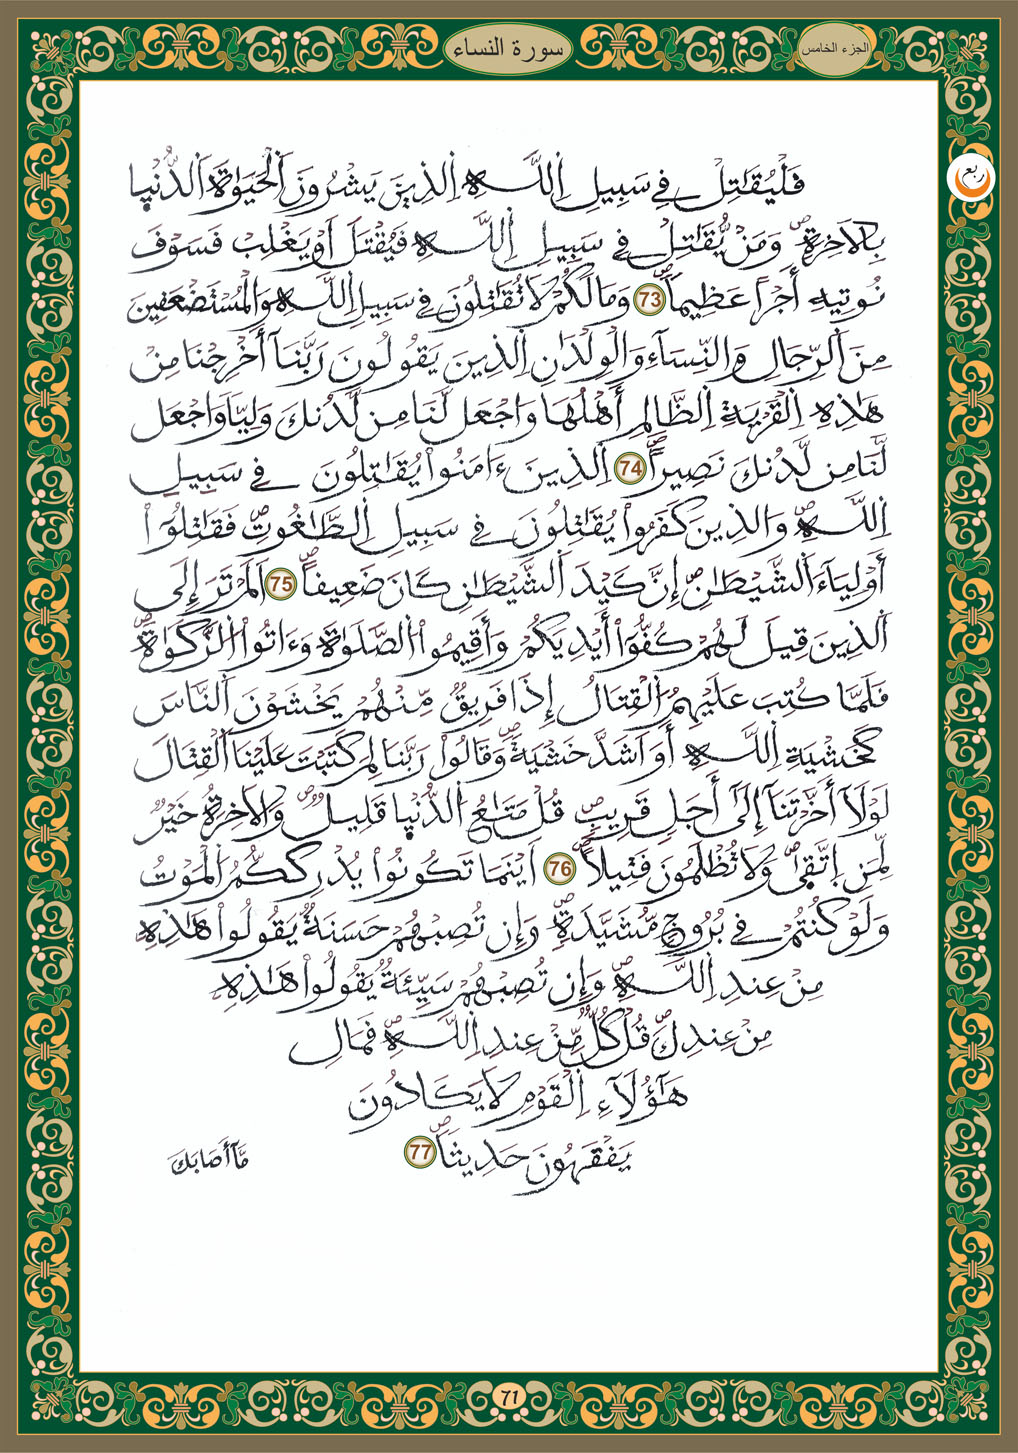 الجزء الخامس
سورة النساء
ربع
فَلْيُقَٰتِلْ فِے سَبِيلِ اِ۬للَّهِ اِ۬لذِينَ يَشْرُونَ اَ۬لْحَيَوٰةَ اَ۬لدُّنْي۪ا
بِالَاخِرَةِۖ وَمَنْ يُّقَٰتِلْ فِے سَبِيلِ اِ۬للَّهِ فَيُقْتَلَ اَوْ يَغْلِبْ فَسَوْفَ
نُوتِيهِ أَجْراً عَظِيماًۖ 73 وَمَا لَكُمْ لَا تُقَٰتِلُونَ فِے سَبِيلِ اِ۬للَّهِ وَالْمُسْتَضْعَفِينَ
مِنَ اَ۬لرِّجَالِ وَالنِّسَآءِ وَالْوِلْدَٰنِ اِ۬لذِينَ يَقُولُونَ رَبَّنَآ أَخْرِجْنَا مِنْ
هَٰذِهِ اِ۬لْقَرْيَةِ اِ۬لظَّالِمِ أَهْلُهَا وَاجْعَل لَّنَا مِن لَّدُنكَ وَلِيّاً وَاجْعَل
لَّنَا مِن لَّدُنكَ نَصِيراًۖ 74 اِ۬لذِينَ ءَامَنُواْ يُقَٰتِلُونَ فِے سَبِيلِ
اِ۬للَّهِۖ وَالذِينَ كَفَرُواْ يُقَٰتِلُونَ فِے سَبِيلِ اِ۬لطَّٰغُوتِۖ فَقَٰتِلُوٓاْ
أَوْلِيَآءَ اَ۬لشَّيْطَٰنِۖ إِنَّ كَيْدَ اَ۬لشَّيْطَٰنِ كَانَ ضَعِيفاًۖ 75 اَلَمْ تَرَ إِلَى
اَ۬لذِينَ قِيلَ لَهُمْ كُفُّوٓاْ أَيْدِيَكُمْ وَأَقِيمُواْ اُ۬لصَّلَوٰةَ وَءَاتُواْ اُ۬لزَّكَوٰةَۖ
فَلَمَّا كُتِبَ عَلَيْهِمُ اُ۬لْقِتَالُ إِذَا فَرِيقٌ مِّنْهُمْ يَخْشَوْنَ اَ۬لنَّاسَ
كَخَشْيَةِ اِ۬للَّهِ أَوَ اَشَدَّ خَشْيَةًۖ وَقَالُواْ رَبَّنَا لِمَ كَتَبْتَ عَلَيْنَا اَ۬لْقِتَالَ
لَوْلَآ أَخَّرْتَنَآ إِلَىٰٓ أَجَلٍ قَرِيبٍۖ قُلْ مَتَٰعُ اُ۬لدُّنْي۪ا قَلِيلٌۖ وَالَاخِرَةُ خَيْرٌ
لِّمَنِ اِ۪تَّق۪ىٰۖ وَلَا تُظْلَمُونَ فَتِيلاًۖ 76 اَيْنَمَا تَكُونُواْ يُدْرِككُّمُ اُ۬لْمَوْتُ
وَلَوْ كُنتُمْ فِے بُرُوجٍ مُّشَيَّدَةٍۖ وَإِن تُصِبْهُمْ حَسَنَةٌ يَّقُولُواْ هَٰذِهِۦ
مِنْ عِندِ اِ۬للَّهِۖ وَإِن تُصِبْهُمْ سَيِّئَةٌ يَّقُولُواْ هَٰذِهِۦ
مِنْ عِندِكَۖ قُلْ كُلٌّ مِّنْ عِندِ اِ۬للَّهِۖ فَمَالِ
هَٰٓؤُلَآءِ اِ۬لْقَوْمِ لَا يَكَادُونَ
يَفْقَهُونَ حَدِيثاًۖ 77
مَّآ أَصَابَكَ
71